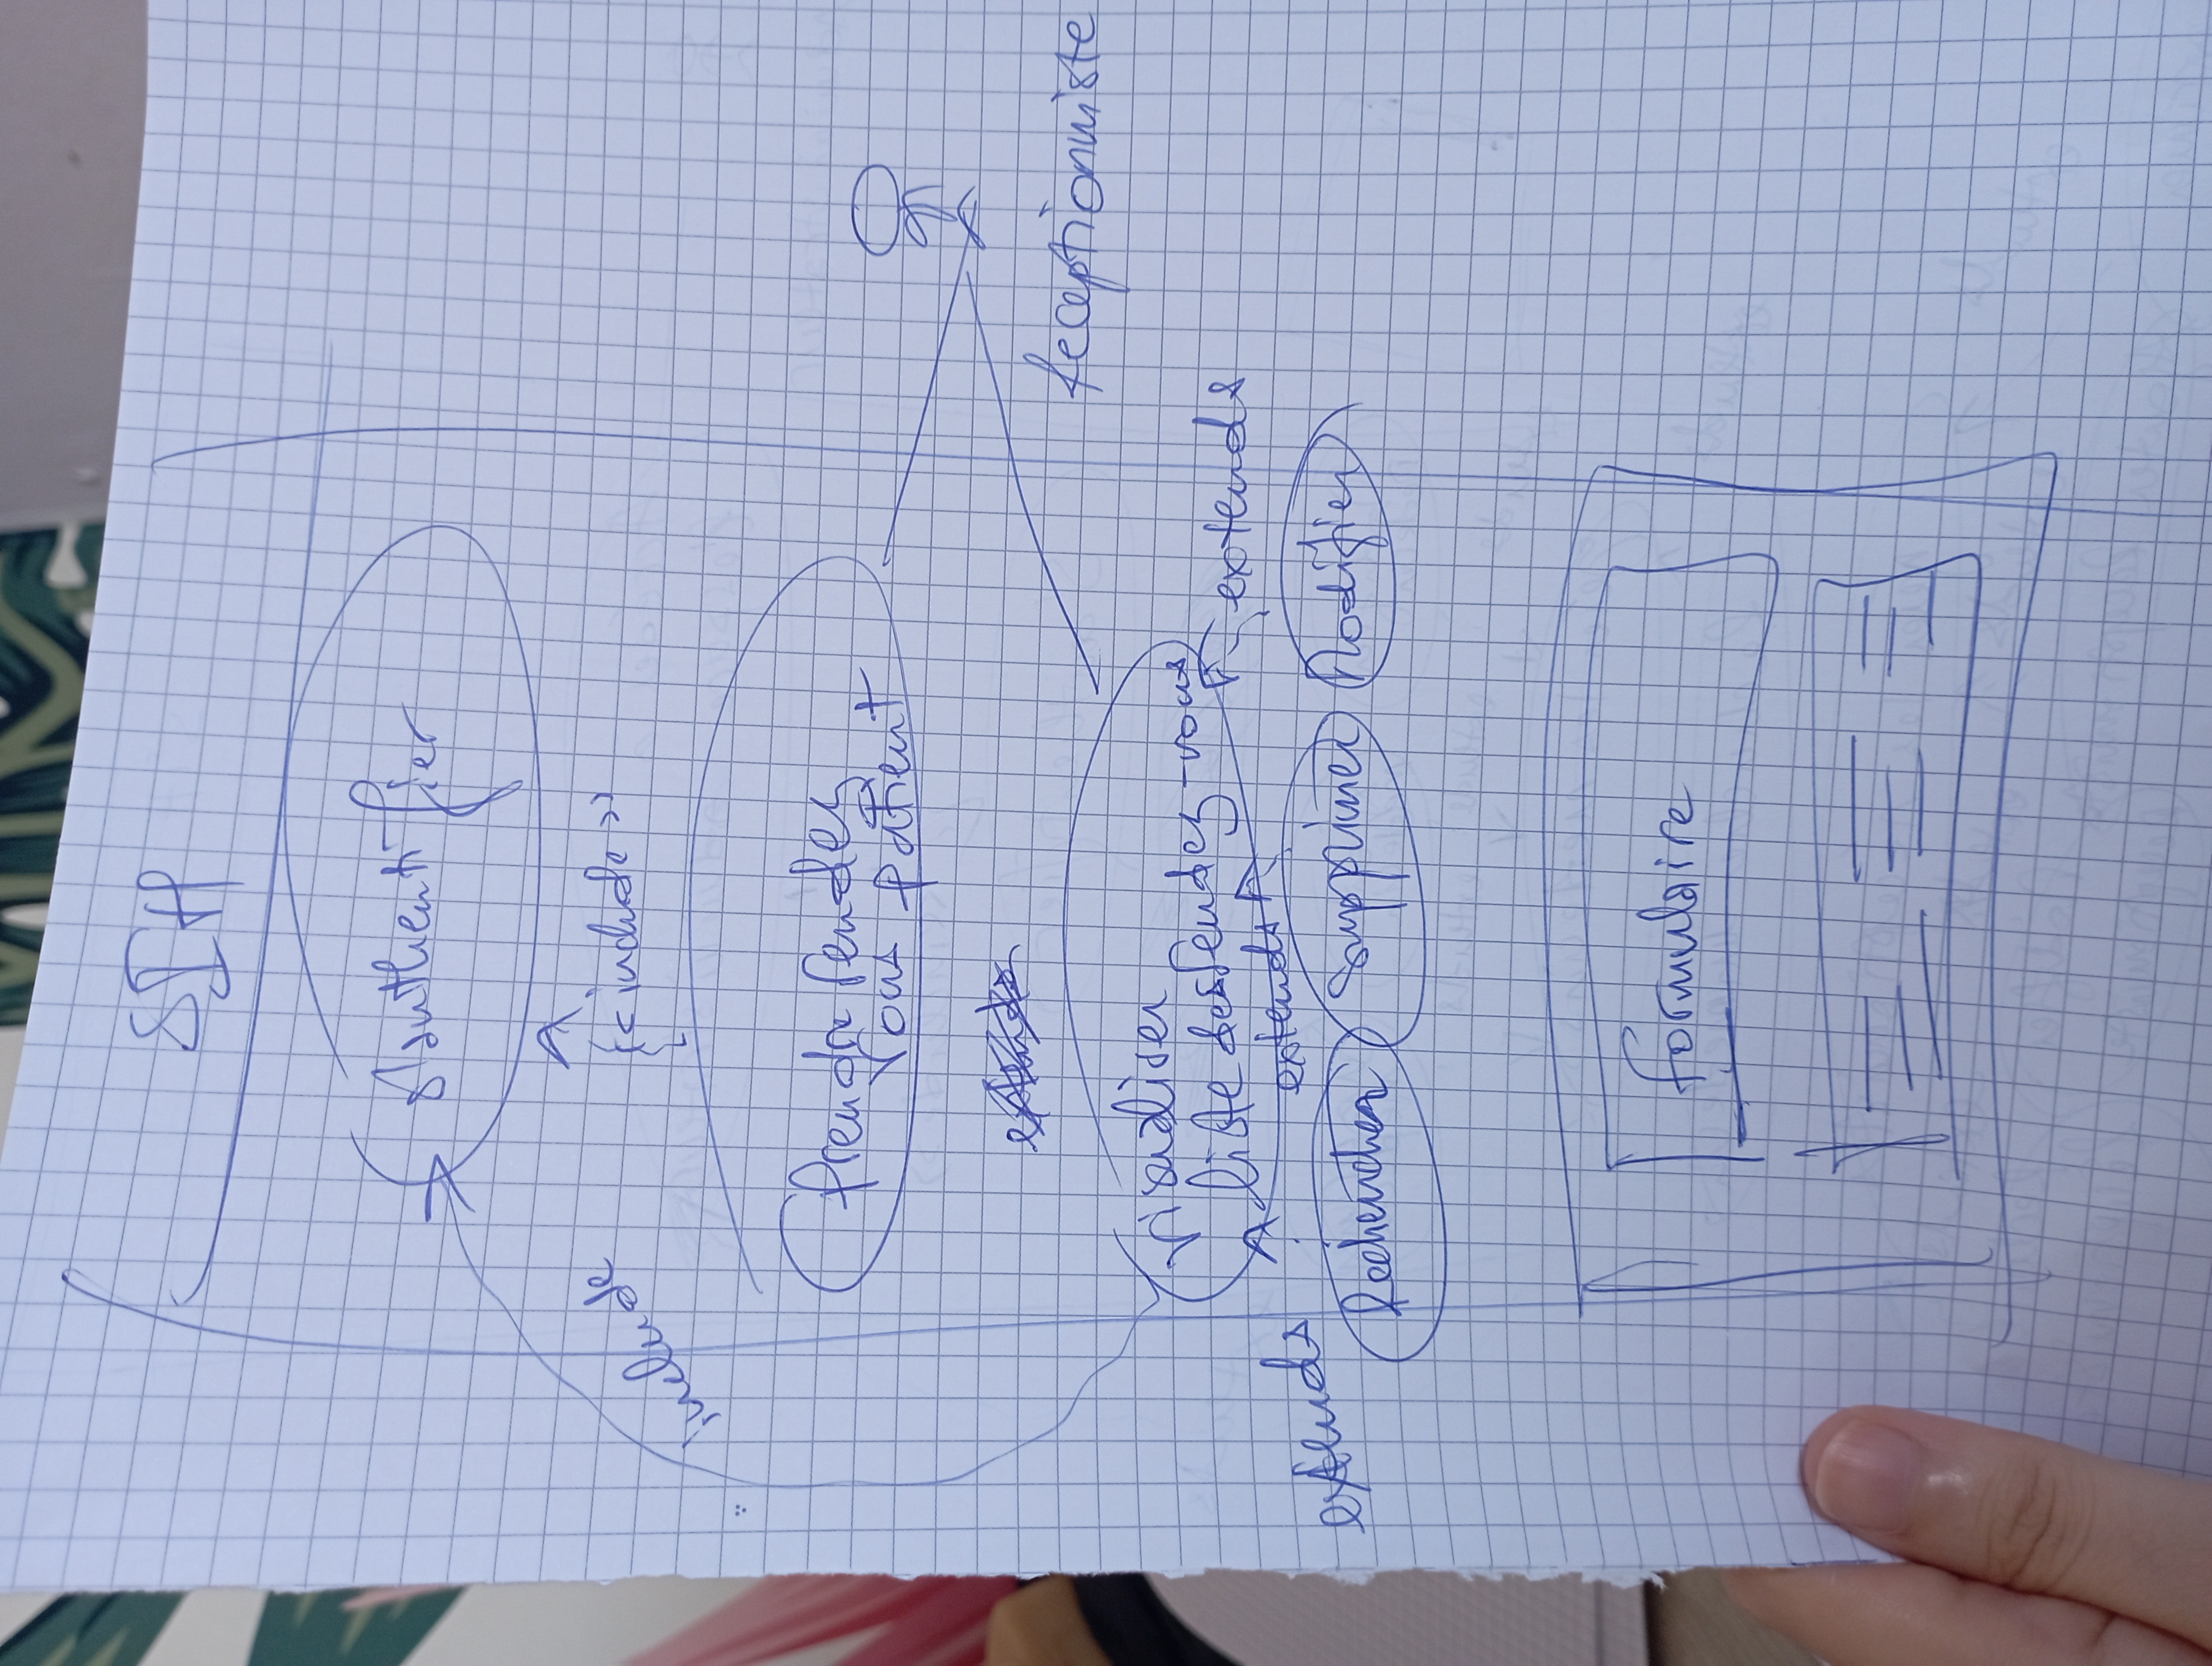 SIH
S'authentifier
<< include >>
include
Prendre rendez
vous patient
receptionniste
visualiser
liste des rendez-vous
extends
extends
extends
Rechercher
Supprimer
Modifier
formulaire